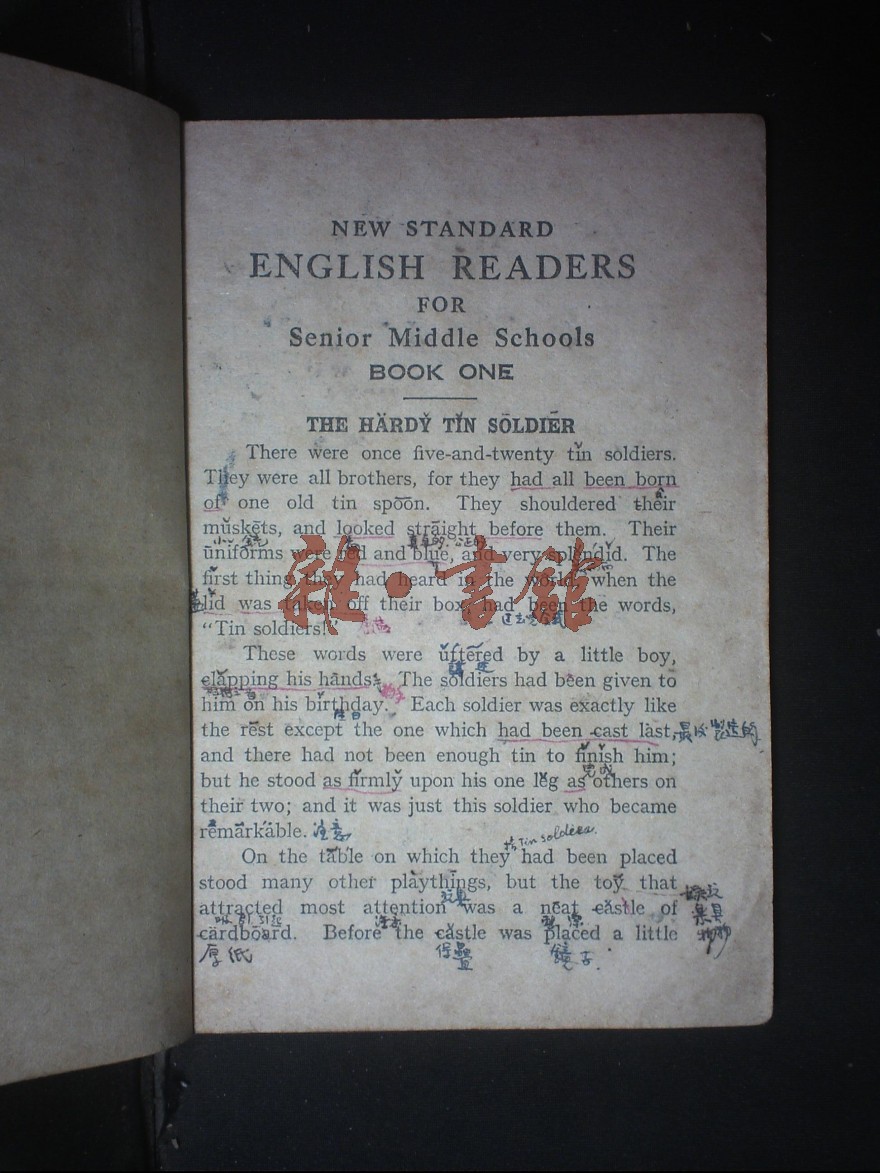 NEW STANDARD
ENGLISH READERS
FOR
Senior Middle Schools
BOOK ONE
THE HÄRDY̆ TĬN SŌLDIẼR
There were once five-and-twenty tĭn soldiers.
They were all brothers, for they had all been born
of one old tin spo͞on. They shouldered their
mŭskĕts, and looked strāight before them. Their
小銃
ūnifôrms were red and blue, and very splĕndĭd. The
first thing they had heard in the world, when the
lĭd was taken off their box, had been the words,
盖
“Tin soldiers!”
These words were ŭttẽred by a little boy,
clăpping his hands. The soldiers had been given to
him on his bĩrthday. Each soldier was exactly like
生日
the rest except the one which had been cast last, 最后製造的
and there had not been enough tin to fĭnĭsh him;
完成
but he stood as fĩrmlў upon his one lĕg as others on
their two; and it was just this soldier who became
rēmärkable. 注意
指Tin soldiers.
On the table on which they had been placed
stood many other plāythĭngs, but the toy that
玩具
attracted most attention was a nēat castle of
吸引,引起 注意
cärdbōard. Before the castle was placed a little
厚纸 保壘 鏡子
雜·書館